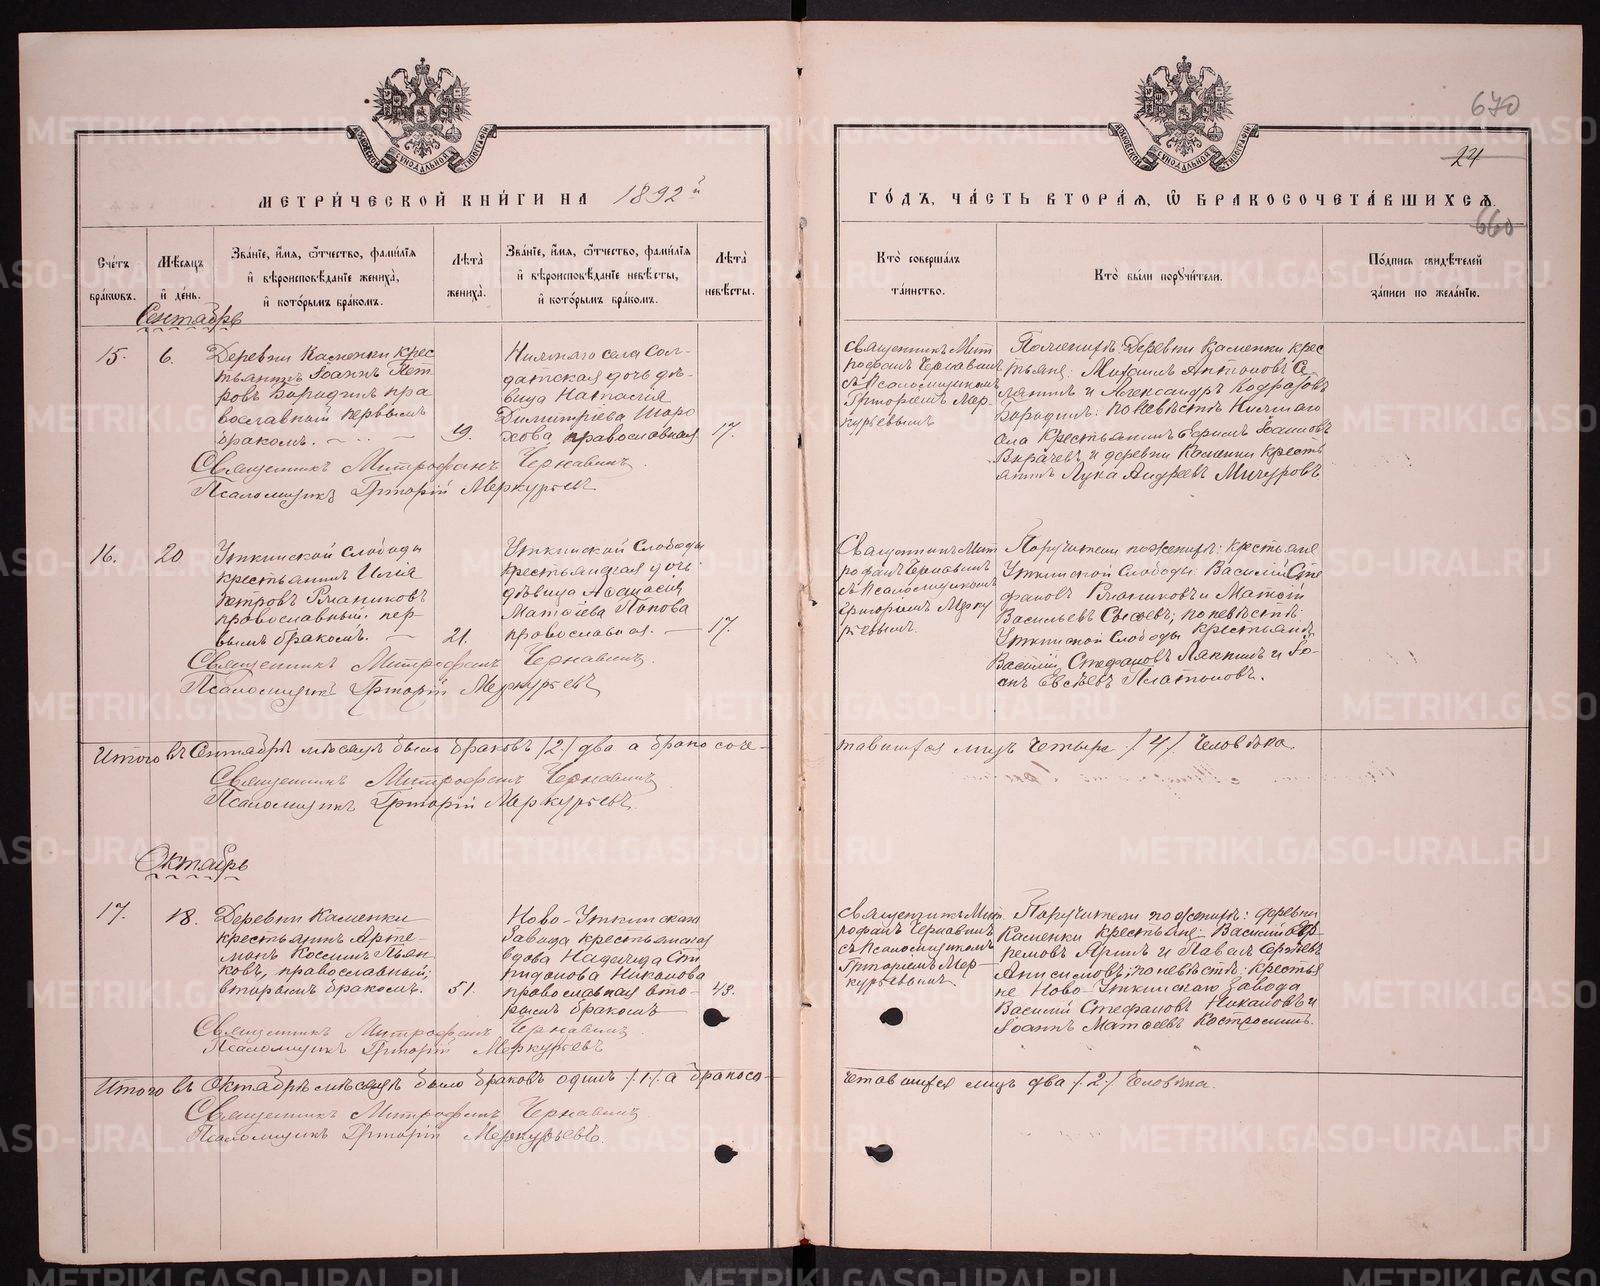 670
24
МЕТРИ́ЧЕСКОЙ КНИ́ГИ НА 1892й
ГО́ДЪ, ЧА́СТЬ ВТОРА́Я, Ѿ БРАКОСОЧЕТА́ВШИХСЯ.
660
Сче́тъ бра́кωвъ.
Мѣ́сяцъ и҆ де́нь.
Зва́нїе, и҆́мѧ, ѻ҆́тчество, фами́лїѧ и҆ вѣроисповѣ́данїе жениха̀, и҆ кото́рымъ бра́комъ.
Лѣ́та жениха̀.
Зва́нїе, и҆́мѧ, ѻ҆́тчество, фами́лїѧ и҆ вѣроисповѣ́данїе невѣ́сты, и҆ кото́рымъ бра́комъ.
Лѣ́та невѣ́сты.
Кто̀ соверша́лъ та́инство.
Кто̀ бы́ли порꙋчи́тели.
По́дпись свидѣ́телей за́писи по жела́нїю.
Сентябрь
15.
6.
Деревни Каменки крес
тьянинъ Іоаннъ Пет
ровъ Бородинъ пра
вославный первымъ
бракомъ.
19.
село Сол-
датская дочь дѣ-
вица Настасія
Димитріева Шоро
хова православная.
17.
Священникъ Мит
рофанъ Чернавинъ
съ Псаломщикомъ
Григоріемъ Мер-
курьевымъ
По женихѣ: Деревни Каменки крес
тьяне: Михаилъ Антоновъ
и Александръ
Бородинъ: по невѣстѣ
села Крестьянинъ Іоанновъ
и деревни Каменки кресть
янинъ Лука Андреевъ Мичуровъ
Священникъ Митрофанъ Чернавинъ.
Псаломщикъ Григорій Меркурьевъ
16.
20
Уткинской Слободы
крестьянинъ Илія
Петровъ
православный, пер-
вымъ бракомъ.
21.
Уткинской Слободы
крестьянская дочь
дѣвица Аѳанасія
Матѳіева Попова
православная.
17.
Священникъ Мит
рофанъ Чернавинъ
съ Псаломщикомъ
Григоріемъ Мерку
рьевымъ.
Поручители по женихѣ: крестьяне
Уткинской Слободы: Василій Сте
фановъ и Матѳій
Васильевъ Сысоевъ; по невѣстѣ:
Уткинской Слободы крестьяне
Василій Стефановъ Лякинъ и Іо-
анъ Евсѣевъ Платоновъ.
Священникъ Митрофанъ Чернавинъ.
Псаломщикъ Григорій Меркурьевъ
Итого въ Сентябрѣ мѣсяцѣ было браковъ /2/ два а брако соче-
тавшихся лицъ четыре /4/ человѣка.
Священникъ Митрофанъ Чернавинъ
Псаломщикъ Григорій Меркурьевъ.
Октябрь
17.
18.
Деревни Каменки
крестьянинъ Арте-
монъ Косминъ Пьян-
ковъ, православный;
вторымъ бракомъ.
51.
Ново-Уткинскаго
Завода крестьянская
вдова Надежда Спи
ридонова Никонова
православная вто-
рымъ бракомъ
43.
Священникъ Мит.
рофанъ Чернавинъ
съ Псаломщикомъ
Григоріемъ Мер-
курьевымъ
Поручители по женихѣ: деревни
Каменки крестьяне: Василій
и Павелъ Сергѣевъ
Анисимовъ; по невѣстѣ: крестья
не Ново-Уткинскаго Завода
Василій Стефановъ Никоновъ и
Іоаннъ Матѳеевъ Костроминъ.
Священникъ Митрофанъ Чернавинъ
Псаломщикъ Григорій Меркурьевъ
Итого въ Октябрѣ мѣсяцѣ было браковъ одинъ /1/ а бракосо-
четавшихся лицъ два /2/ человѣка.
Священникъ Митрофанъ Чернавинъ
Псаломщикъ Григорій Меркурьевъ.
METRIKI.GASO-URAL.RU